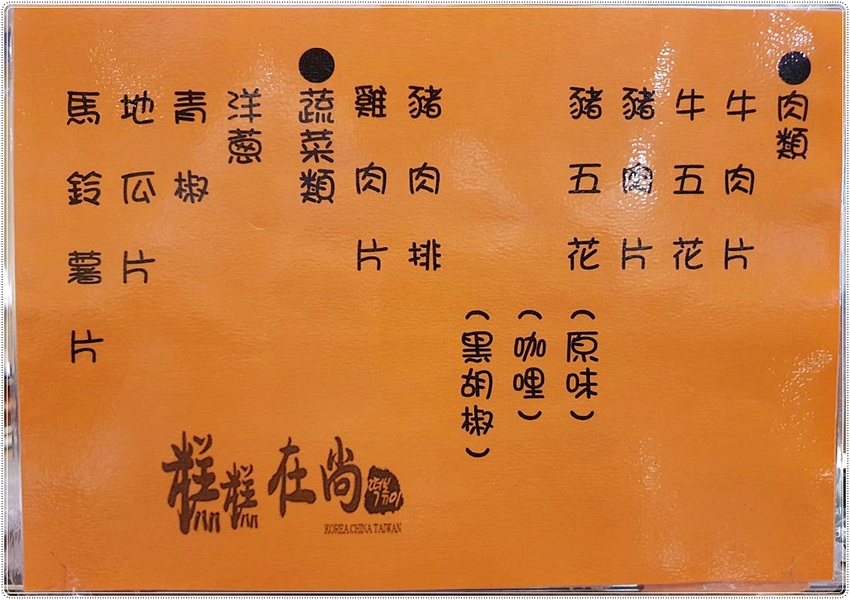 肉類
牛肉片
牛五花
豬肉片
豬五花(原味)
(咖哩)
(黑胡椒)
豬肉排
雞肉片
蔬菜類
洋蔥
青椒
地瓜片
馬鈴薯片
糕糕在尚
떡볶이
KOREA CHINA TAIWAN